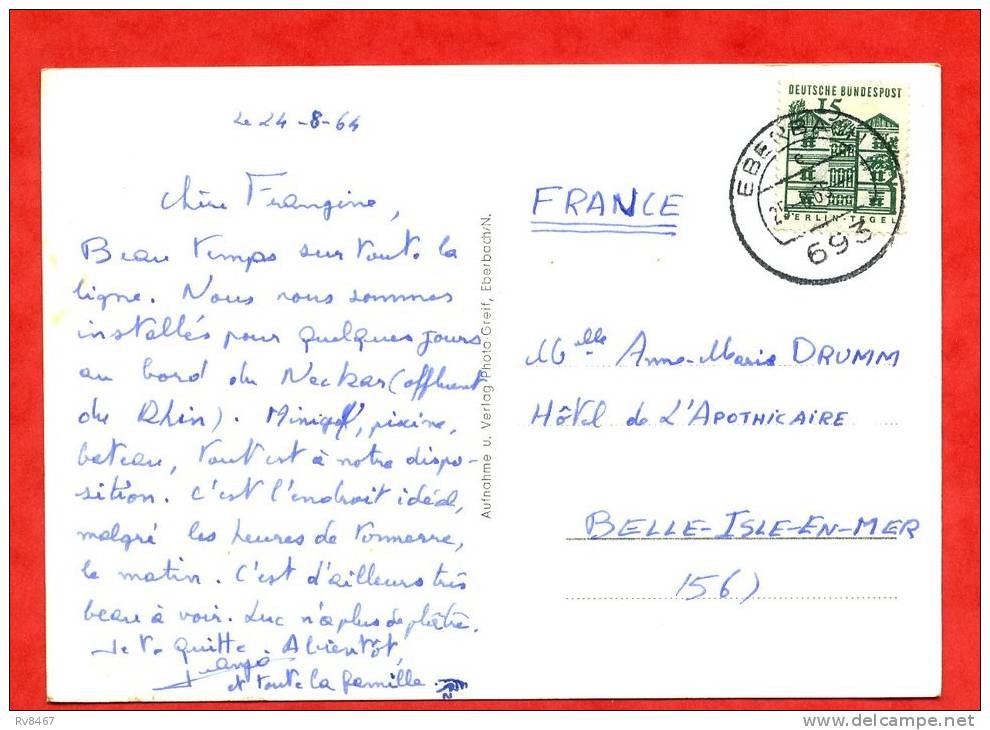 Le 24-8-64
Chère Frangine,
Beau temps sur toute la
ligne. Nous nous sommes
installés pour quelques jours
au bord du Neckar (affluent
du Rhin). Minigolf, piscine,
bateau, tout est à notre dispo-
sition. C'est l'endroit idéal,
malgré les heures de tonnerre,
le matin. C'est d'ailleurs très
beau à voir. Luc n'a plus de plâtre.
Je te quitte. A bientôt,
et toute la famille.
Aufnahme u. Verlag Photo-Greif, Eberbach/N.
DEUTSCHE BUNDESPOST
15
BERLIN-TEGEL
EBERBACH
693
FRANCE
Melle Anne-Marie DRUMM
Hôtel de L'APOTHICAIRE
BELLE-ISLE-EN-MER
(56)
Rv8467
delcampe.net